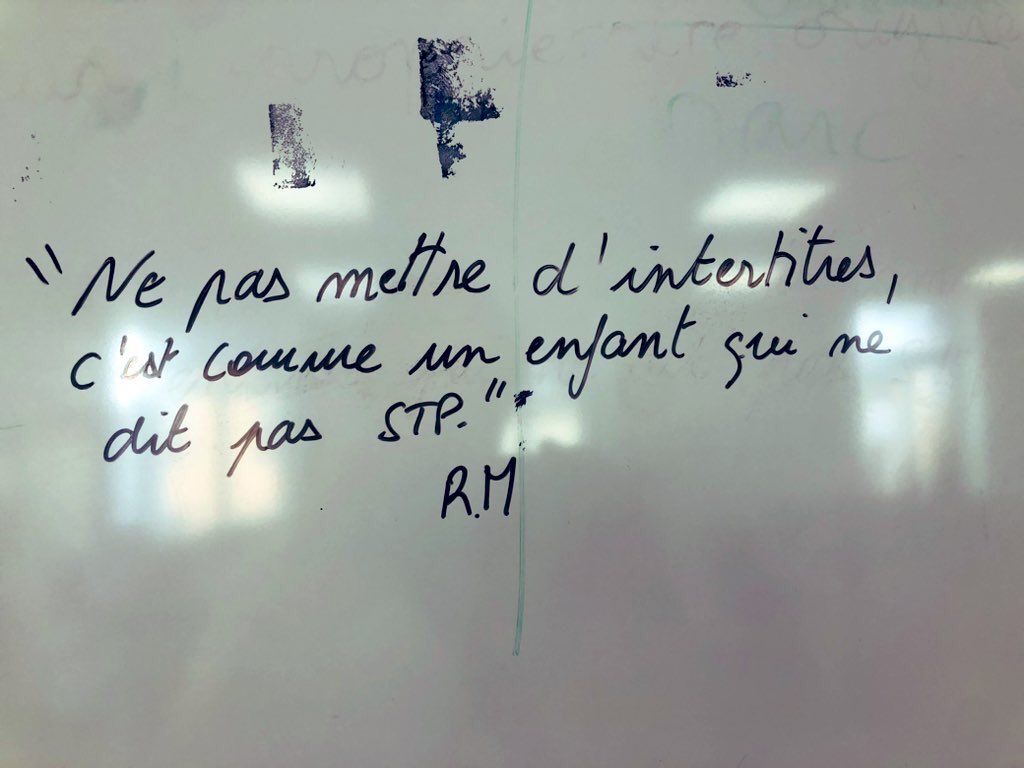 "Ne pas mettre d'intertitres,
c'est comme un enfant qui ne
dit pas STP."
R.M